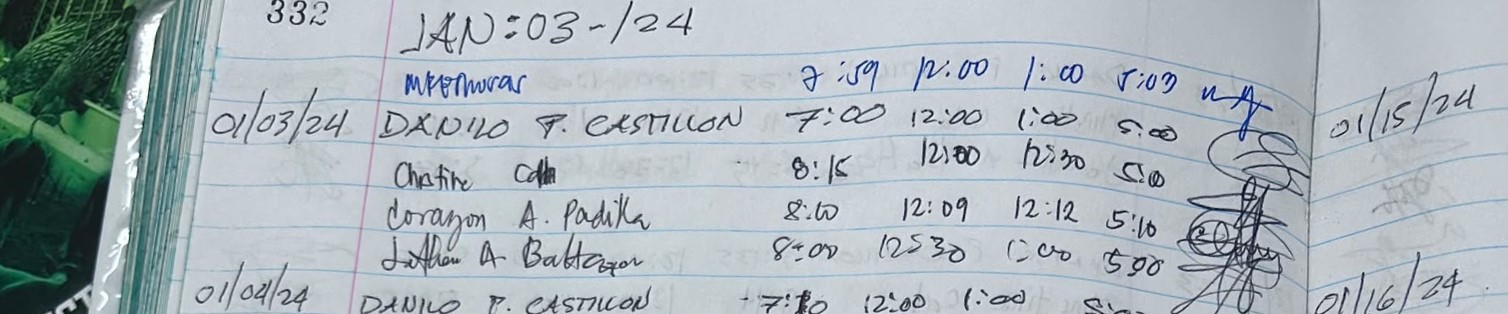 332
JAN:03-/24
7:59 12:00 1:00 5:03
01/03/24 DANILO P. CASTILLON 7:00 12:00 1:00 5:00
Christine 8:15 12:00 12:30 5:00
Corazon A. Padilla 8:00 12:09 12:12 5:10
A. Baltazar 8:00 12:30 1:00 5:00
01/04/24 DANILO P. CASTILLON 12:00 1:00
01/15/24
01/16/24